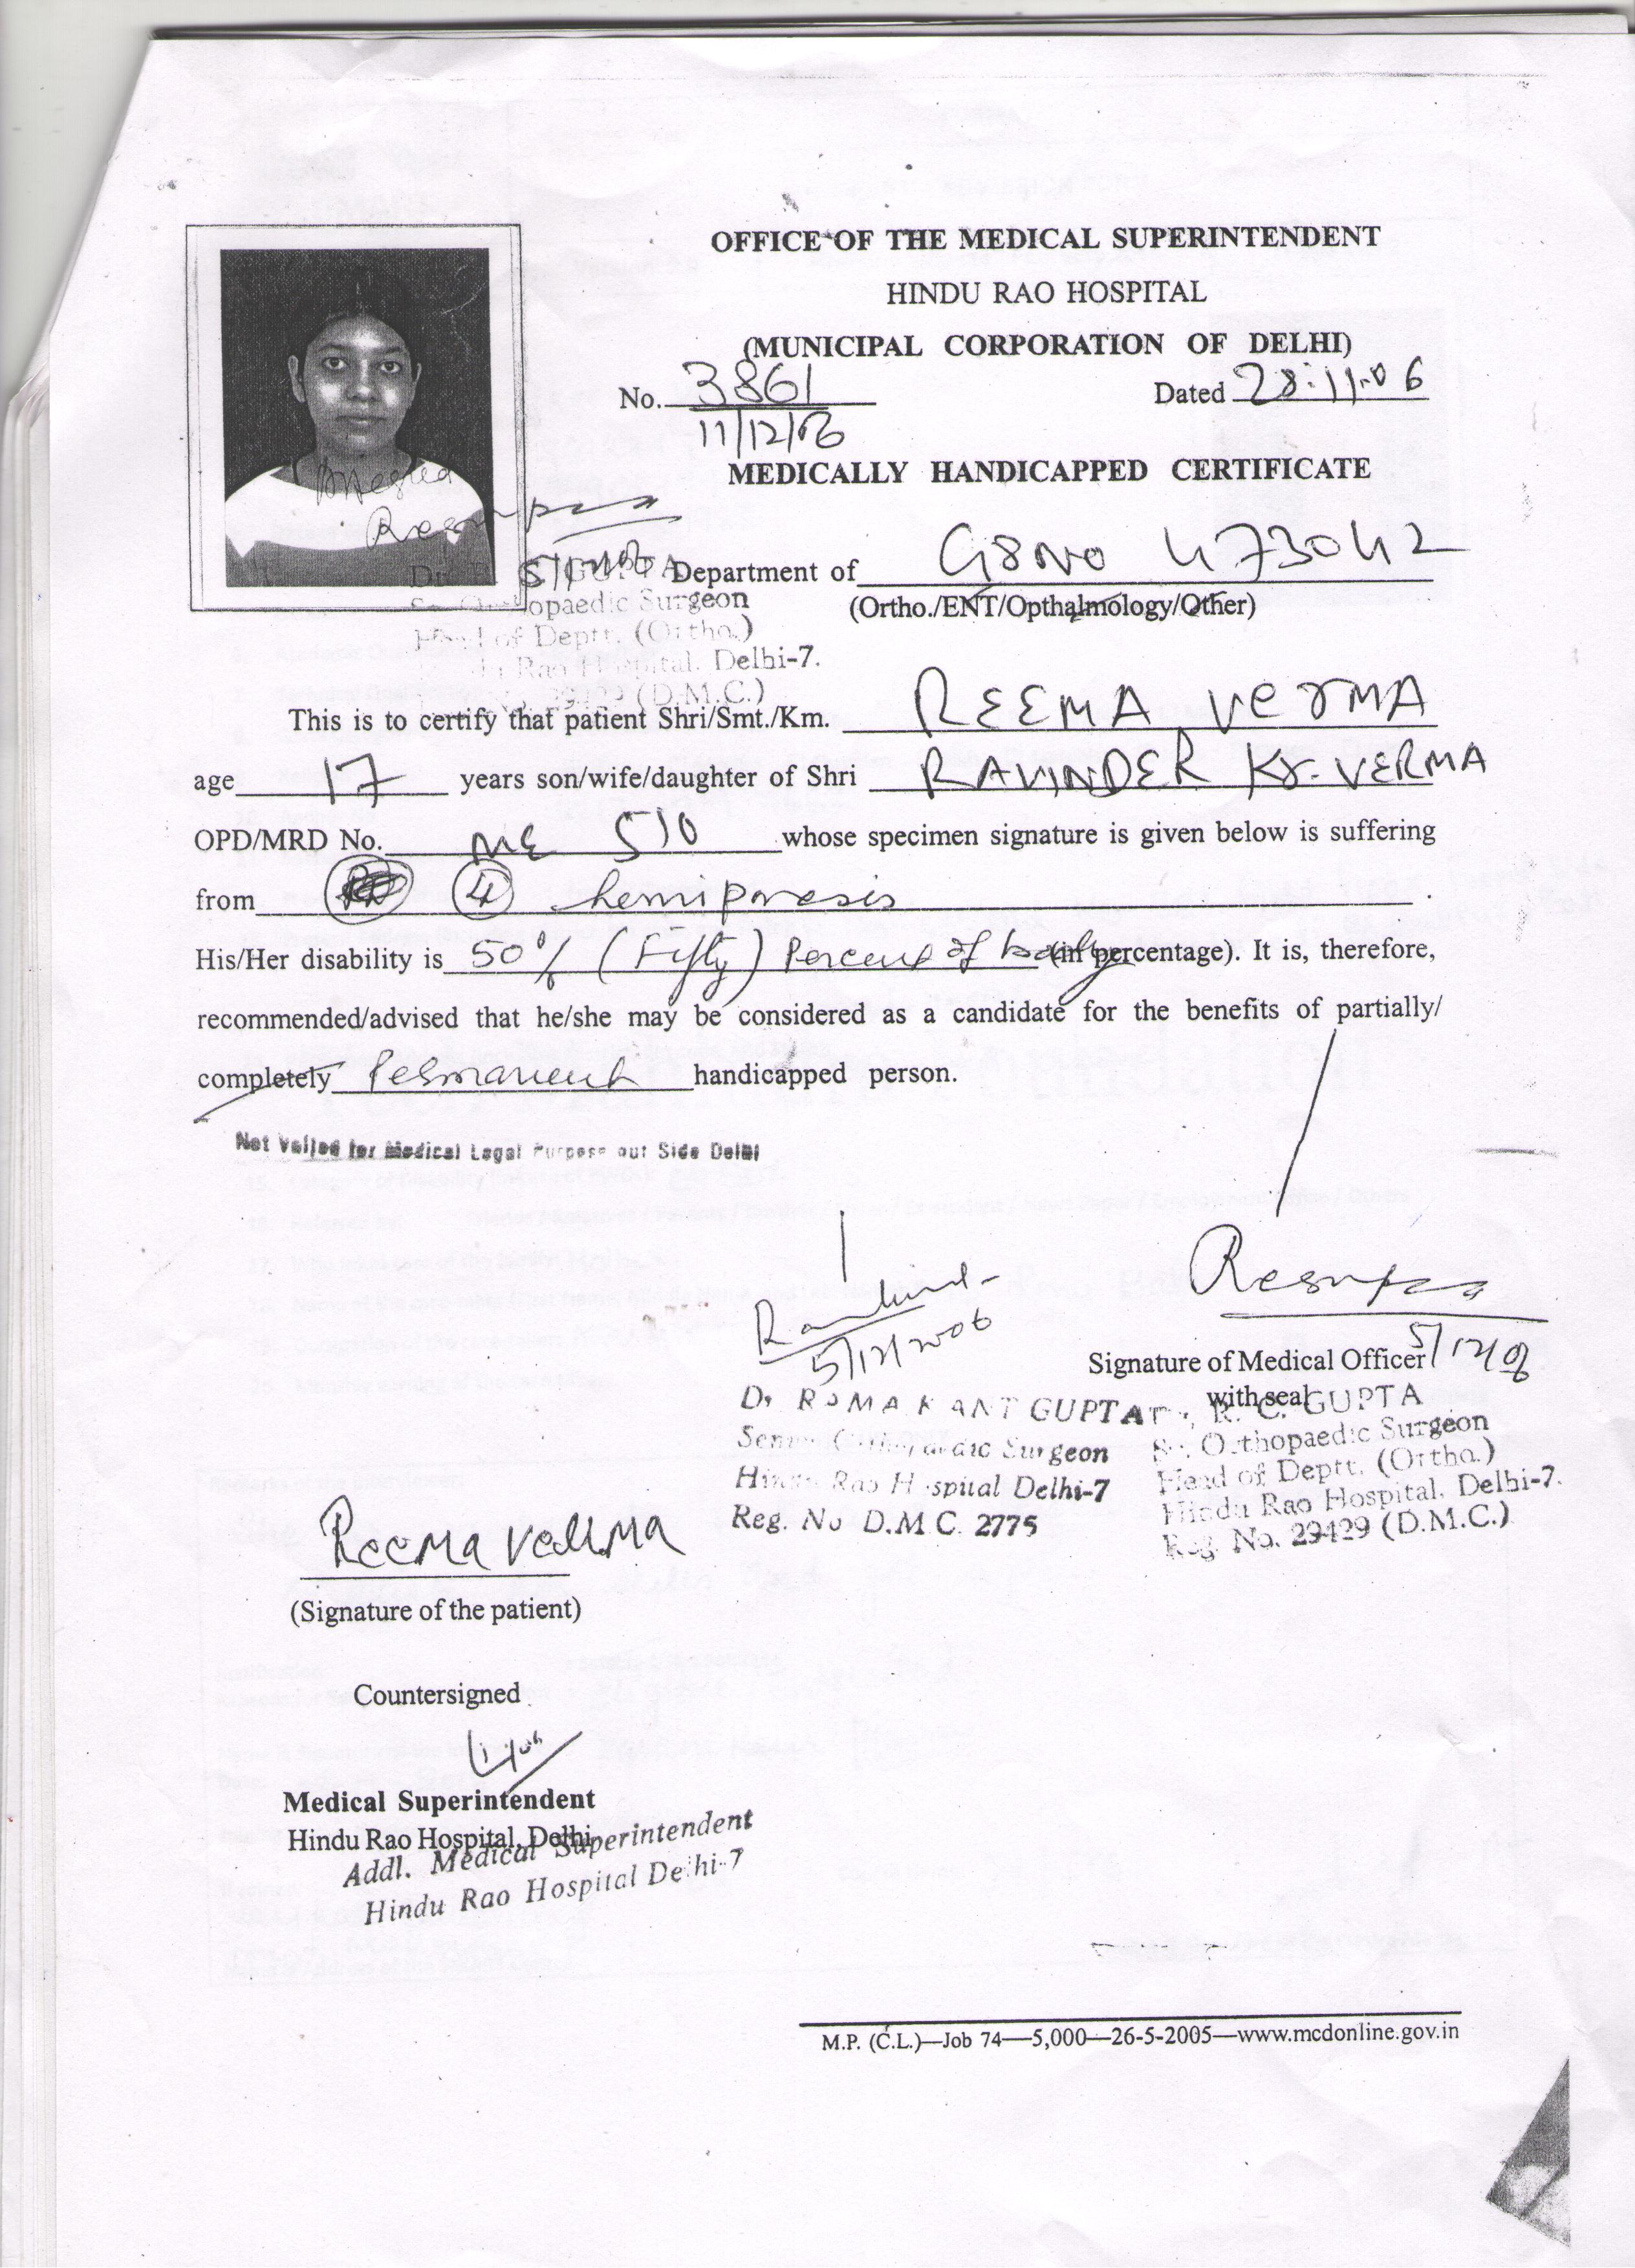 OFFICE OF THE MEDICAL SUPERINTENDENT
HINDU RAO HOSPITAL
(MUNICIPAL CORPORATION OF DELHI)
No. 3861 Dated 28.11.06
11/12/06
MEDICALLY HANDICAPPED CERTIFICATE
Attested
Department of 473042
(Ortho./ENT/Opthalmology/Other)
GUPTA
Orthopaedic Surgeon
Head of Deptt. (Ortho.)
Rao Hospital, Delhi-7.
(D.M.C.)
This is to certify that patient Shri/Smt./Km. REEMA VERMA
age 17 years son/wife/daughter of Shri RAVINDER Kr. VERMA
OPD/MRD No. ME 510 whose specimen signature is given below is suffering
from hemiparesis .
His/Her disability is 50% (Fifty) Percent of body (in percentage). It is, therefore,
recommended/advised that he/she may be considered as a candidate for the benefits of partially/
completely Permanent handicapped person.
Not Valied for Medical Legal Purpose out Side Delhi
5/12/2006
Signature of Medical Officer 5/12/06
with seal
Dr ROMA KANT GUPTA
Senior Orthopaedic Surgeon
Hindu Rao Hospital Delhi-7
Reg. No D.M.C. 2775
Dr. R. C. GUPTA
Sr. Orthopaedic Surgeon
Head of Deptt. (Ortho.)
Hindu Rao Hospital, Delhi-7.
Reg. No. 29429 (D.M.C.)
Reema Verma
(Signature of the patient)
Countersigned
Medical Superintendent
Hindu Rao Hospital, Delhi
Addl. Medical Superintendent
Hindu Rao Hospital Delhi-7
M.P. (C.L.)—Job 74—5,000—26-5-2005—www.mcdonline.gov.in